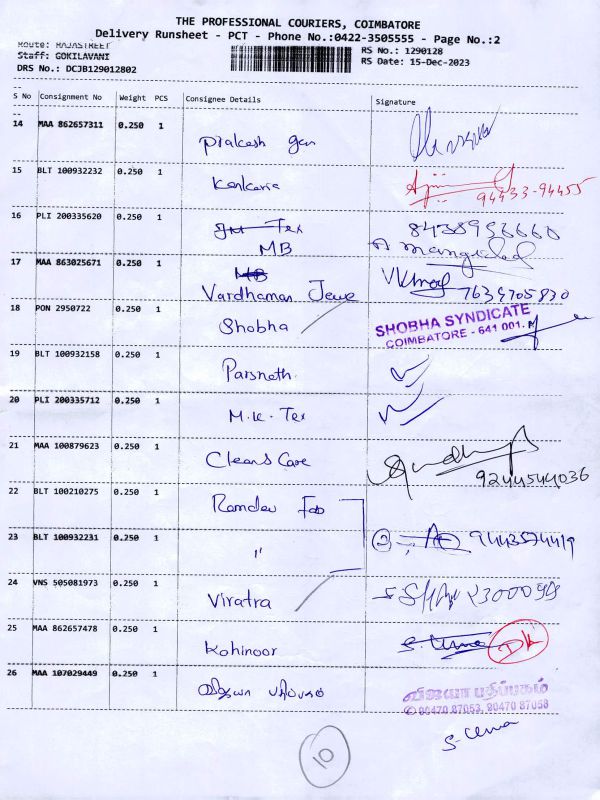 THE PROFESSIONAL COURIERS, COIMBATORE
Delivery Runsheet - PCT - Phone No.:0422-3505555 - Page No.:2
Route: RAJASTREET
Staff: GOKILAVANI
DRS No.: DCJB129012802
RS No.: 1290128
RS Date: 15-Dec-2023
S No Consignment No Weight PCS Consignee Details Signature
14 MAA 862657311 0.250 1 Prakash gan
15 BLT 100932232 0.250 1 Kankaria 94433-94455
16 PLI 200335620 0.250 1 Tex 8438956660
MB
17 MAA 863025671 0.250 1 MB
Vardhaman Jewe 7639705830
18 PON 2950722 0.250 1 Shobha SHOBHA SYNDICATE
COIMBATORE - 641 001.
19 BLT 100932158 0.250 1 Parsnath
20 PLI 200335712 0.250 1 M.K. Tex
21 MAA 100879623 0.250 1 Clean & Care
9244544036
22 BLT 100210275 0.250 1 Ramdev Fab
23 BLT 100932231 0.250 1 " ② 9443574419
24 VNS 505081973 0.250 1 Viratra
25 MAA 862657478 0.250 1 Kohinoor S. Uma
26 MAA 107029449 0.250 1 விஜயா பதிப்பகம் விஜயா பதிப்பகம்
90470 87053, 90470 87058
S. Uma
10